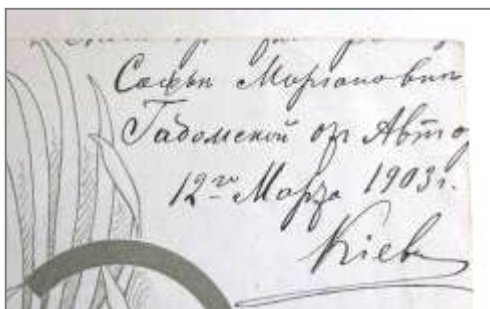 Софьи Маріановн
Гадомской отъ Авто
12го Марта 1903г.
Кіевъ